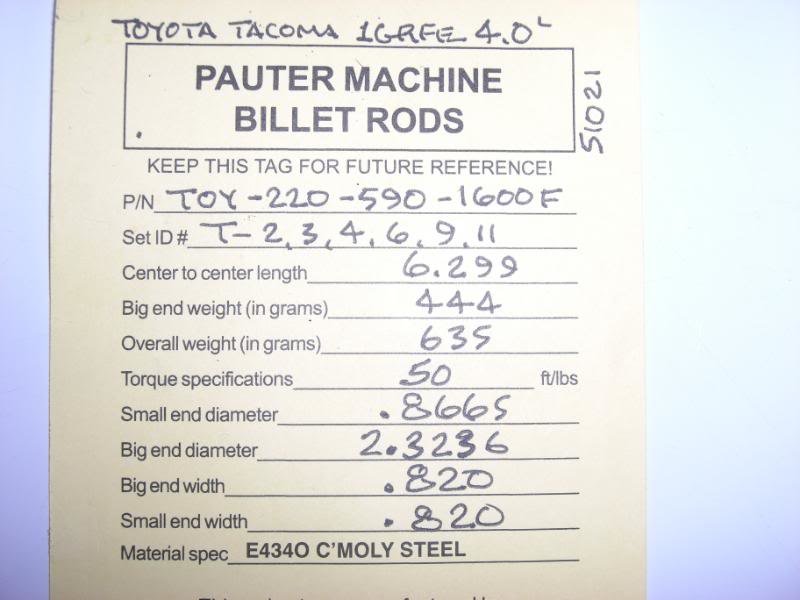 TOYOTA TACOMA 1GRFE 4.0L
PAUTER MACHINE
BILLET RODS
51021
KEEP THIS TAG FOR FUTURE REFERENCE!
P/N TOY-220-590-1600F
Set ID # T-2,3,4,6,9,11
Center to center length 6.299
Big end weight (in grams) 444
Overall weight (in grams) 635
Torque specifications 50 ft/lbs
Small end diameter .8665
Big end diameter 2.3236
Big end width .820
Small end width .820
Material spec E434O C'MOLY STEEL